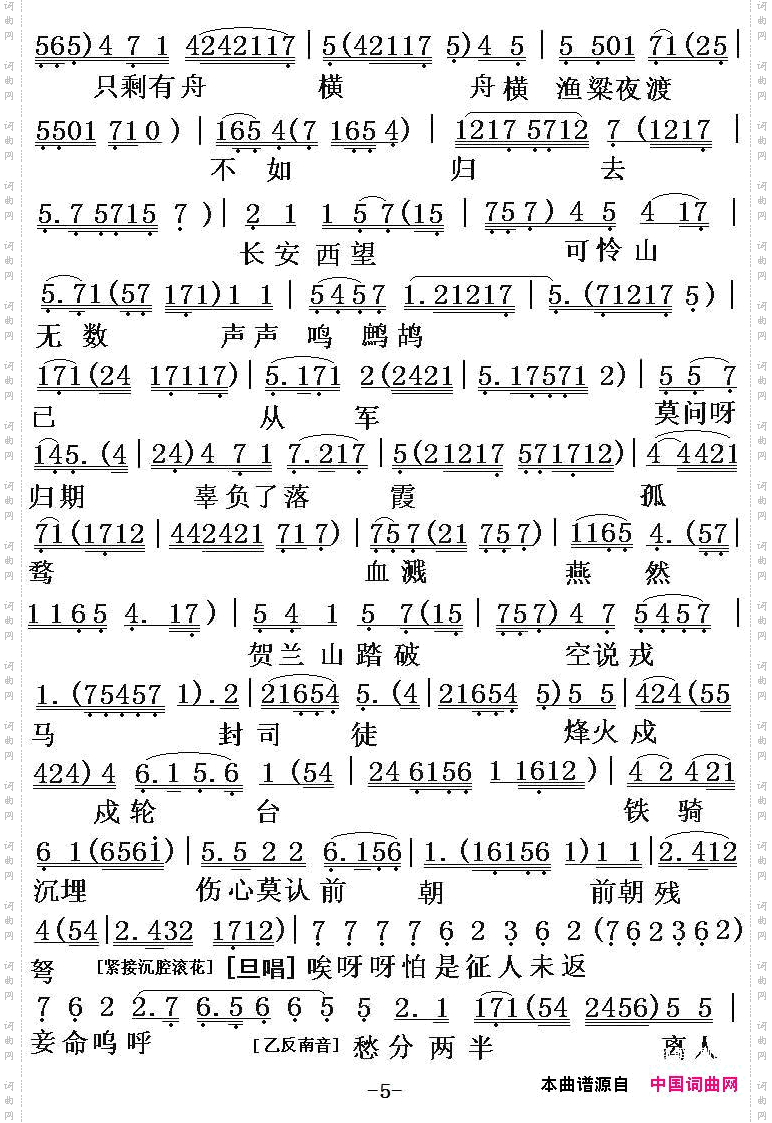 565) 4 7 1 4242117 | 5(42117 5) 4 5 | 5 501 71(25 |
只剩有舟 横 舟横 渔粱夜渡
5501 710 ) | 165 4(7 1654) | 1217 5712 7 (1217 |
不如 归 去
5.7 5715 7 ) | 2 1 1 5 7(15 | 757) 4 5 4 17 |
长安西望 可怜山
5.71(57 171)1 1 | 5457 1.21217 | 5.(71217 5) |
无数 声声鸣鹧鸪
171(24 17117) | 5.171 2(2421 | 5.17571 2) | 5 5 7
已 从 军 莫问呀
145.(4 | 24)4 7 1 7.217 | 5(21217 571712 | 4 4421
归期 辜负了落 霞 孤
71(1712 | 442421 717) | 757(21 757) | 1165 4.(57 |
鹜 血溅 燕然
1165 4. 17) | 5 4 1 5 7(15 | 757) 4 7 5457 |
贺兰山踏破 空说戎
1.(75457 1).2 | 21654 5.(4 | 21654 5) 5 5 | 424(55
马 封司 徒 烽火戍
424) 4 6.1 5.6 1 (54 | 24 6156 1 1612 ) | 4 2 421
戍轮 台 铁骑
6 1(656i) | 5.5 2 2 6.156 | 1.(16156 1) 1 1 | 2.412
沉埋 伤心莫认前 朝 前朝残
4(54 | 2.432 1712) | 7 7 7 7 6 2 3 6 2 (762362)
弩 [紧接沉腔滚花] [旦唱] 唉呀呀怕是征人未返
7 6 2 2.7 6.5 6 6 5 5 2. 1 171(54 2456) 5 5 |
妾命呜呼 [乙反南音] 愁分两半 离人
-5-
本曲谱源自 中国词曲网
词曲网